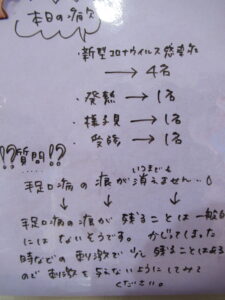 本日の病欠
・新型コロナウイルス感染症
→ 4名
・発熱 → 1名
・様子見 → 1名
・受診 → 1名
!?質問!?
いつまでも
手足口病の痕が消えません…
手足口病の痕が残ることは一般的
にはないそうです。かじってしまった
時などの刺激で少し残ることはある
ので刺激を与えないようにしてみて
ください。